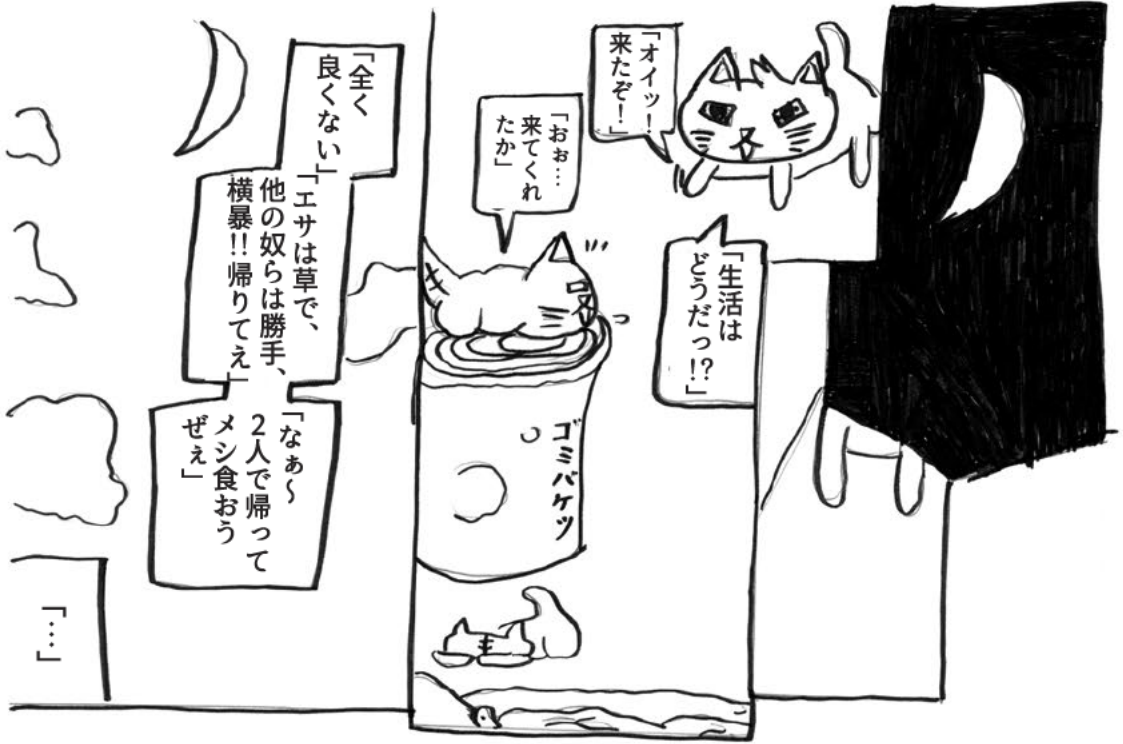 「オイッ！
来たぞ！」
「生活は
どうだっ!?」
「おぉ…
来てくれ
たか」
ゴミバケツ
「全く
良くない」
「エサは草で、
他の奴らは勝手、
横暴!!帰りてえ」
「なぁ～
２人で帰って
メシ食おう
ぜぇ」
「…」